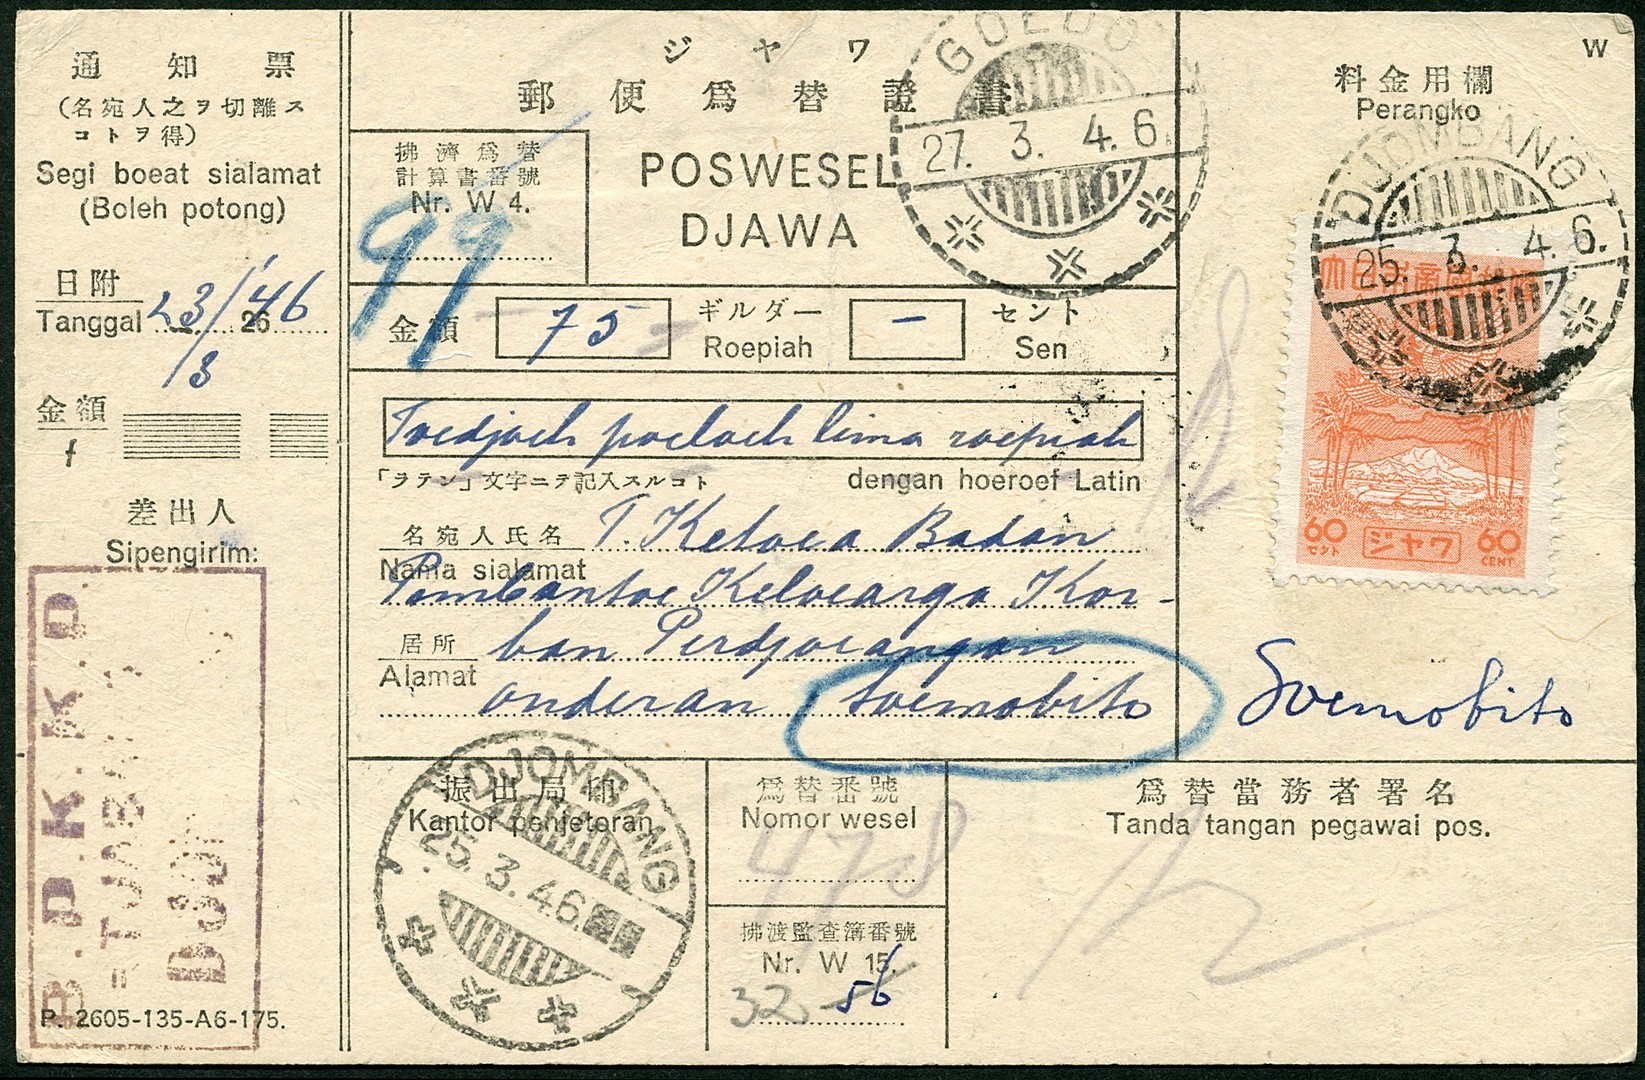 通知票
(名宛人之ヲ切離ス
コトヲ得)
Segi boeat sialamat
(Boleh potong)
日附
Tanggal 23/3 '46 26
金額
f
差出人
Sipengirim:
B.P.K.K.P
P. 2605-135-A6-175.
ジャワ
郵便爲替證書
POSWESEL
DJAWA
拂濟爲替
計算書番號
Nr. W 4.
99
金額 75 ギルダー
Roepiah
- セント
Sen
Toedjoeh poeloeh lima roepiah
「ラテン」文字ニテ記入スルコト dengan hoeroef Latin
名宛人氏名
Nama sialamat
T. Ketoea Badan
Pembantoe Keloearga Kor-
居所
Alamat
ban Perdjoeangan
onderan Soemobito
振出局印
Kantor penjetoran
DJOMBANG
25.3.46.
爲替番號
Nomor wesel
478
拂渡監査簿番號
Nr. W 15.
32 56
爲替當務者署名
Tanda tangan pegawai pos.
GOEDO
27. 3. 4.6.
W
料金用欄
Perangko
DJOMBANG
25. 3. 4.6.
大日本帝國郵便
60 セント ジャワ 60 CENT
Soemobito